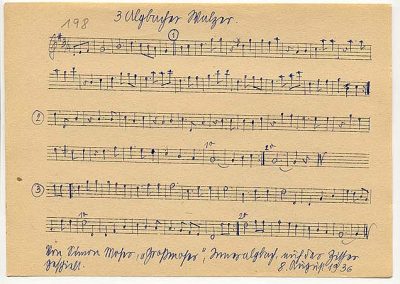 198
3 Algbacher Walzer.
①
②
1º 2º
③
1º 2º
Von Simon Moser, „Großmoser", Inneralgbach, auf der Zither
gespielt. 8. August 1936